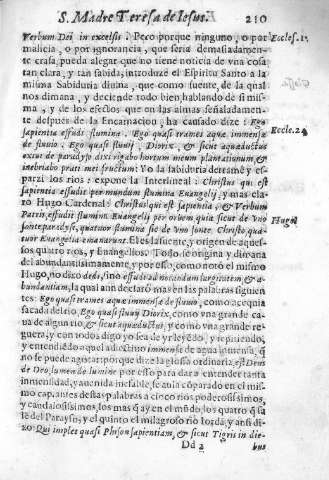 S. Madre Teresa de Iesus. 210
Verbum Dei in excelsis. Pero porque ninguno, o por
Eccles. 1.
malicia, o por ignorancia, que seria demasiadamen-
te crasa, pueda alegar que no tiene noticia de vna cosa
tan clara, y tan sabida, introduze el Espiritu Santo a la
misma Sabiduria diuina, que como fuente, de la qual
nos dimana, y deciende todo bien, hablando de si mis-
ma, y de los efectos que en las almas señaladamente
despues de la Encarnacion, ha causado dize: Ego
sapientia effudi flumina. Ego quasi trames aquæ immensæ
Eccle. 24
de fluuio. Ego quasi fluuij Diorix, & sicut aquæductus
exiui de paradyso dixi rigabo hortum meum plantationum, &
inebriabo prati mei fructum: Yo la sabiduria derramè y es-
parzi los rios: expone la Interlineal: Christus qui est
sapientia effudit per mundum flumina Euangelij, y mas cla-
ro Hugo Cardenal: Christus qui est sapientia, & Verbum
Patris, effudit flumina Euangelij per orbem quia sicut de vno
Hugo
fonte paradysi, quatuor flumina sic de vno fonte. Christo qua-
tuor Euangelia emanarunt. El es la fuente, y origen de aques-
sos quatro rios, y Euangelios. Todo se origina y dimana
del abundantissimamente, y por esso, como notò el mismo
Hugo, no dixo dedi, sino effudi ad notandum largitatem, &
abundantiam, la qual aun declarò mas en las palabras siguien
tes: Ego quasi trames aquæ immensæ de fluuio, como acequia
sacada del rio, Ego quasi fluuij Diorix, como vna grande ca-
ua de algun rio, & sicut aquæductus, y como vna grande re-
guera, y con todos digo yo sea de
y entendiendo aquel adiectiuo immensæ de aqua ipmensa, q̃
no se puede agotar por que dize la glossa ordinaria est Deus
de Deo, lumen de lumine por esso para dar a entender tanta
inmensidad, y auenida inefable, se auia còparado en el mis-
mo cap. antes destas palabras a cinco rios poderosissimos,
y caudalosissimos, los mas q̃ ay en el mũdo, los quatro q̃ sa
le del Parayso, y el quinto el milagroso rio Iordã, y ansi di-
zo: Qui implet quasi Phison sapientiam, & sicut Tigris in die-
Dd 2 bus